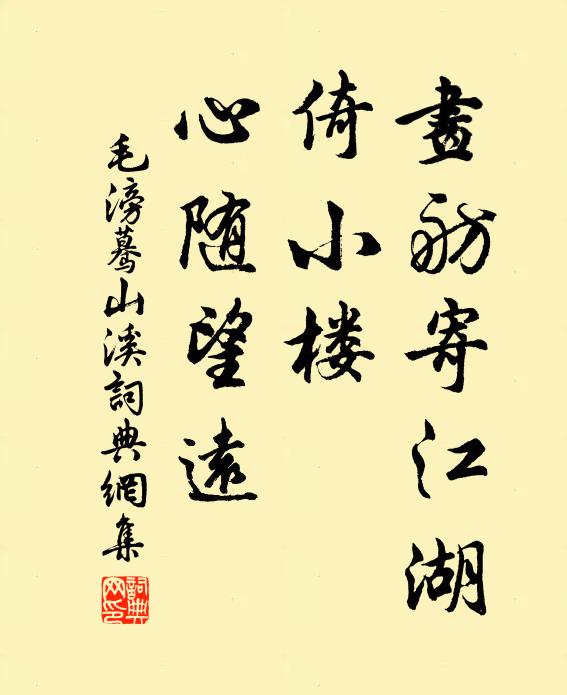 畫舫寄江湖
倚小楼
心随望遠
毛滂驀山溪詞典網集
詞典網印